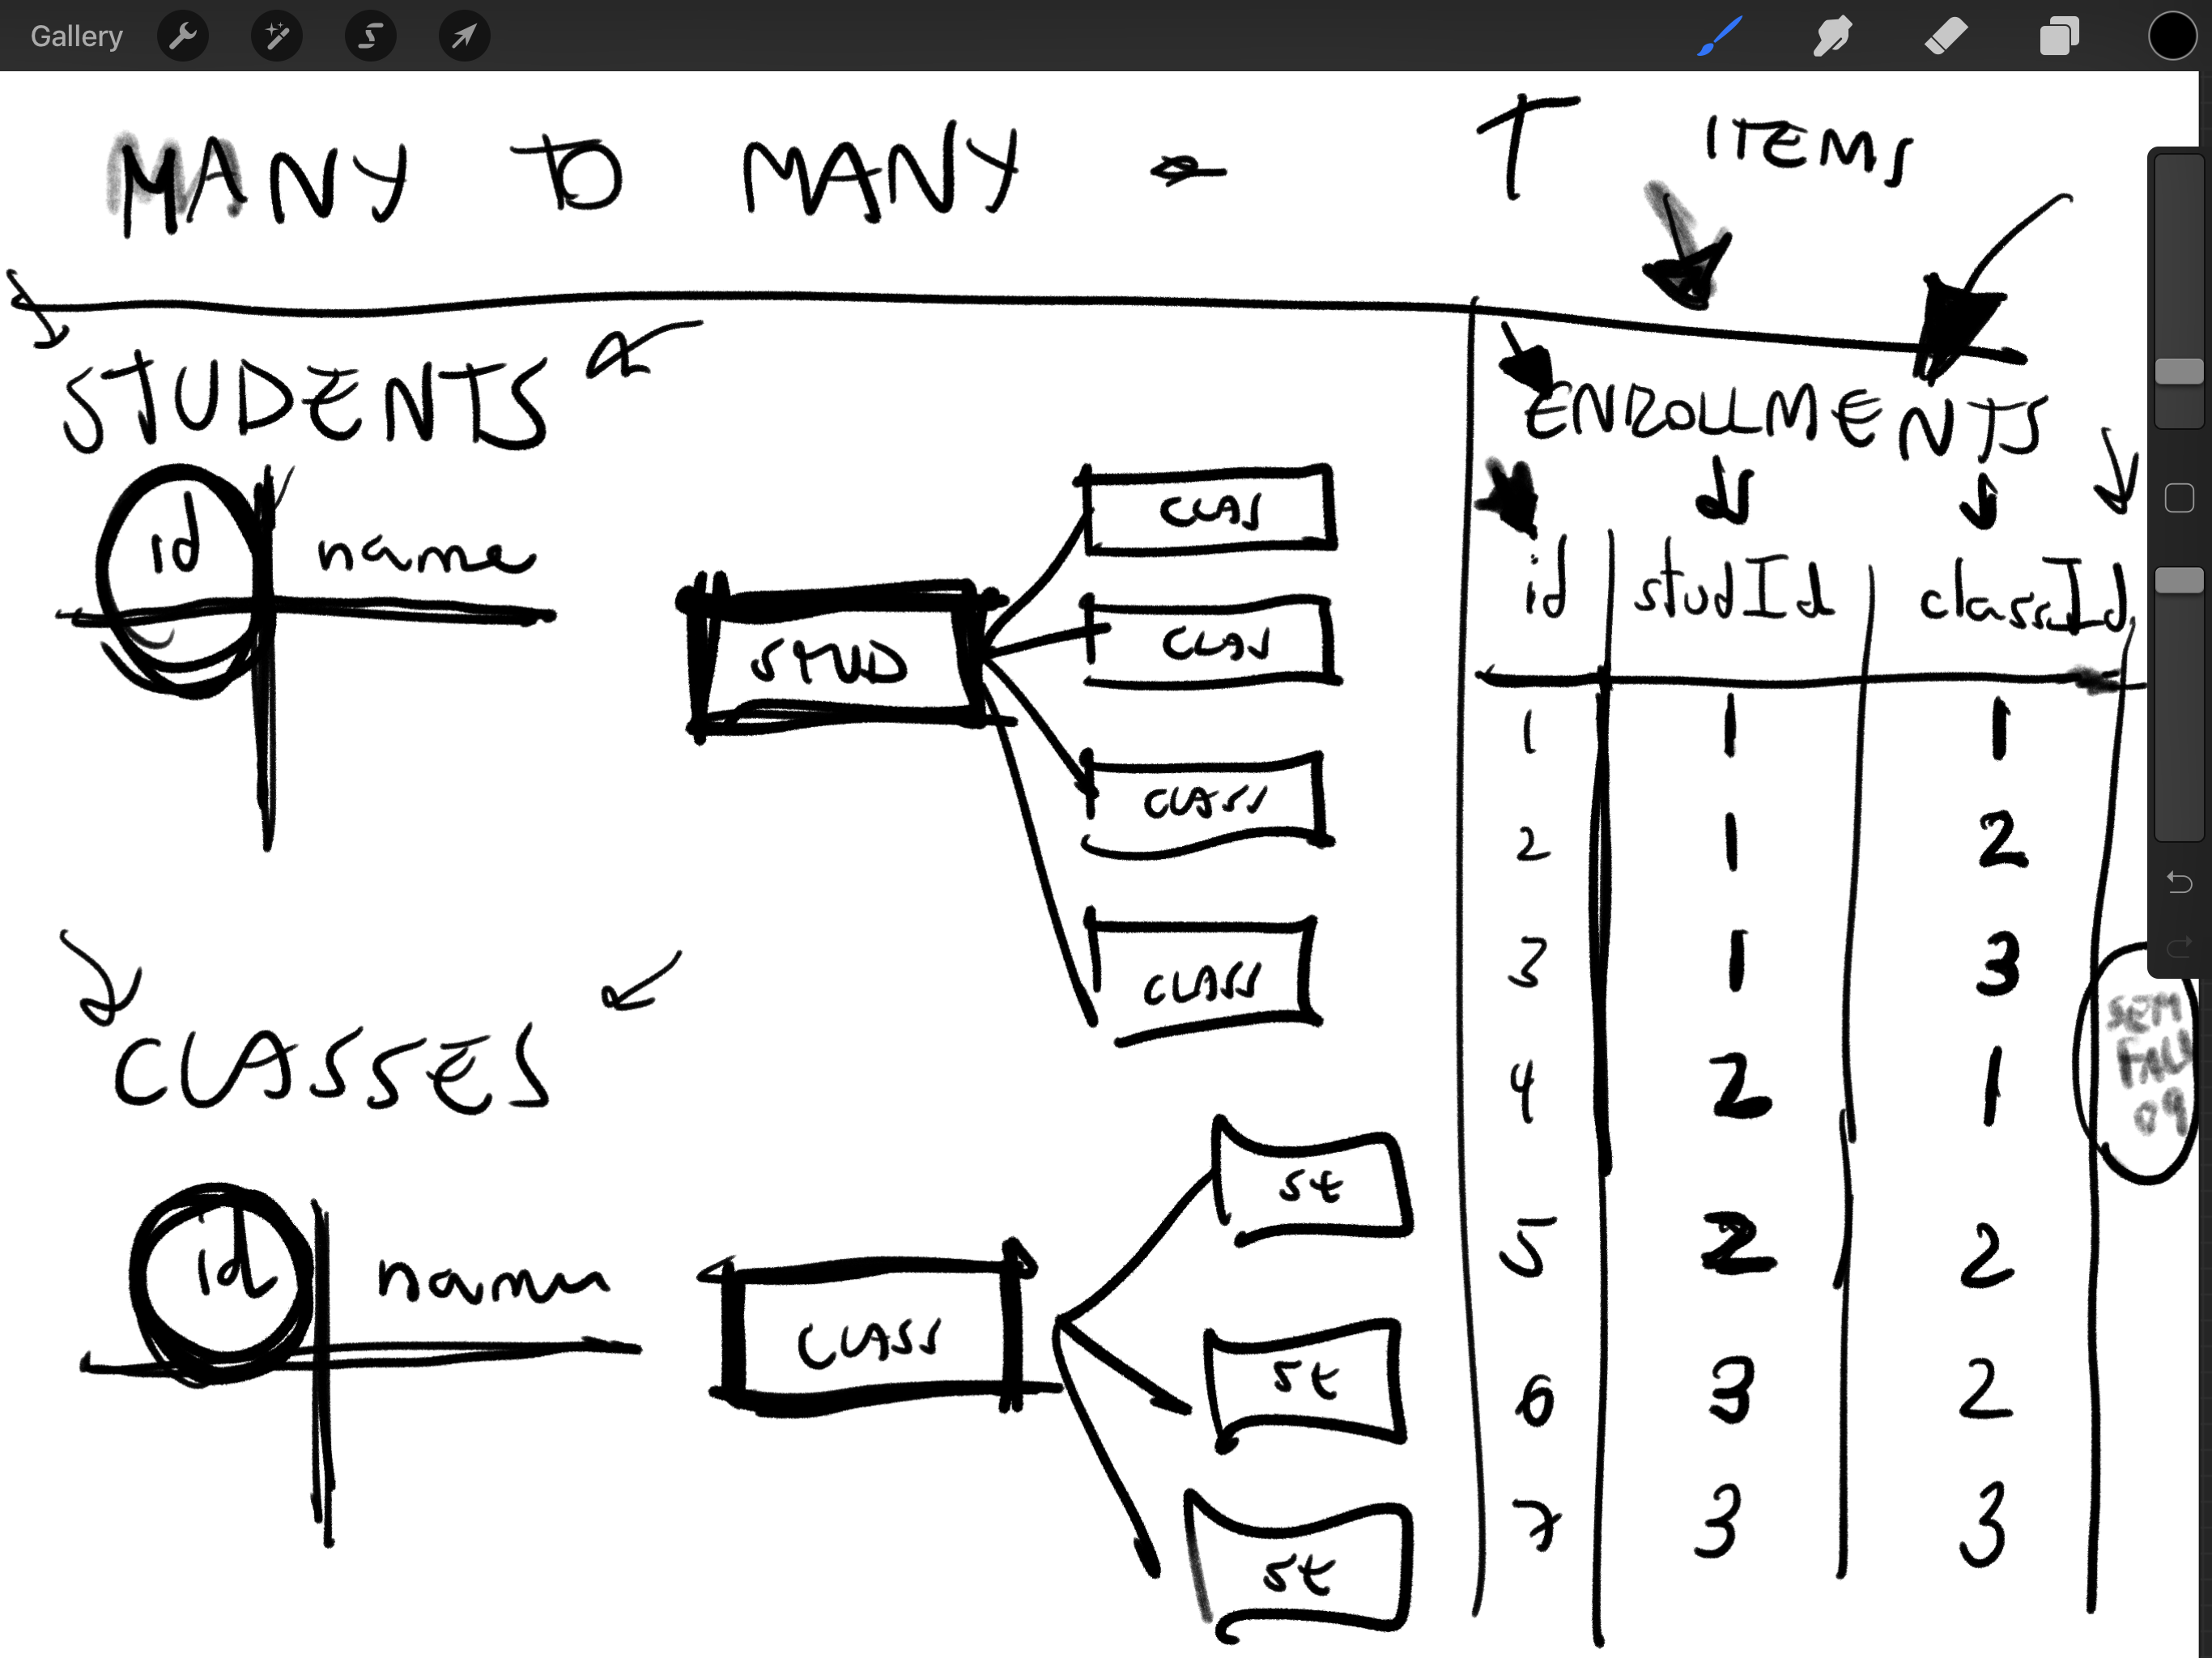 Gallery
MANY TO MANY =
T ITEMS
STUDENTS
id name
STUD
CLAS
CLAS
CLASS
CLASS
CLASSES
id
CLASS
st
st
st
ENROLLMENTS
id studId classId
1 1 1
2 1 2
3 1 3
4 2 1
5 2 2
6 3 2
7 3 3
SEM
FALL
09